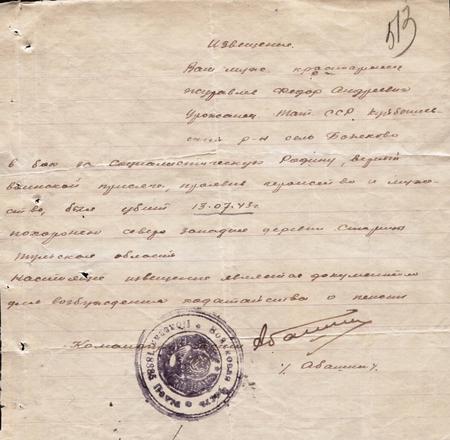 513
Извещение
Ваш муж красноармеец
Журавлев Федор Андреевич
Уроженец Тат. ССР Куйбышев-
ский р-н село Бажеково
в бою за Социалистическую Родину, верный
воинской присяге, проявив геройство и муже-
ство, был убит 13.07.43г
похоронен северо западнее деревни Старица
Тульской области
Настоящее извещение является документом
для возбуждения ходатайства о пенсии
Командир
/Абашин/